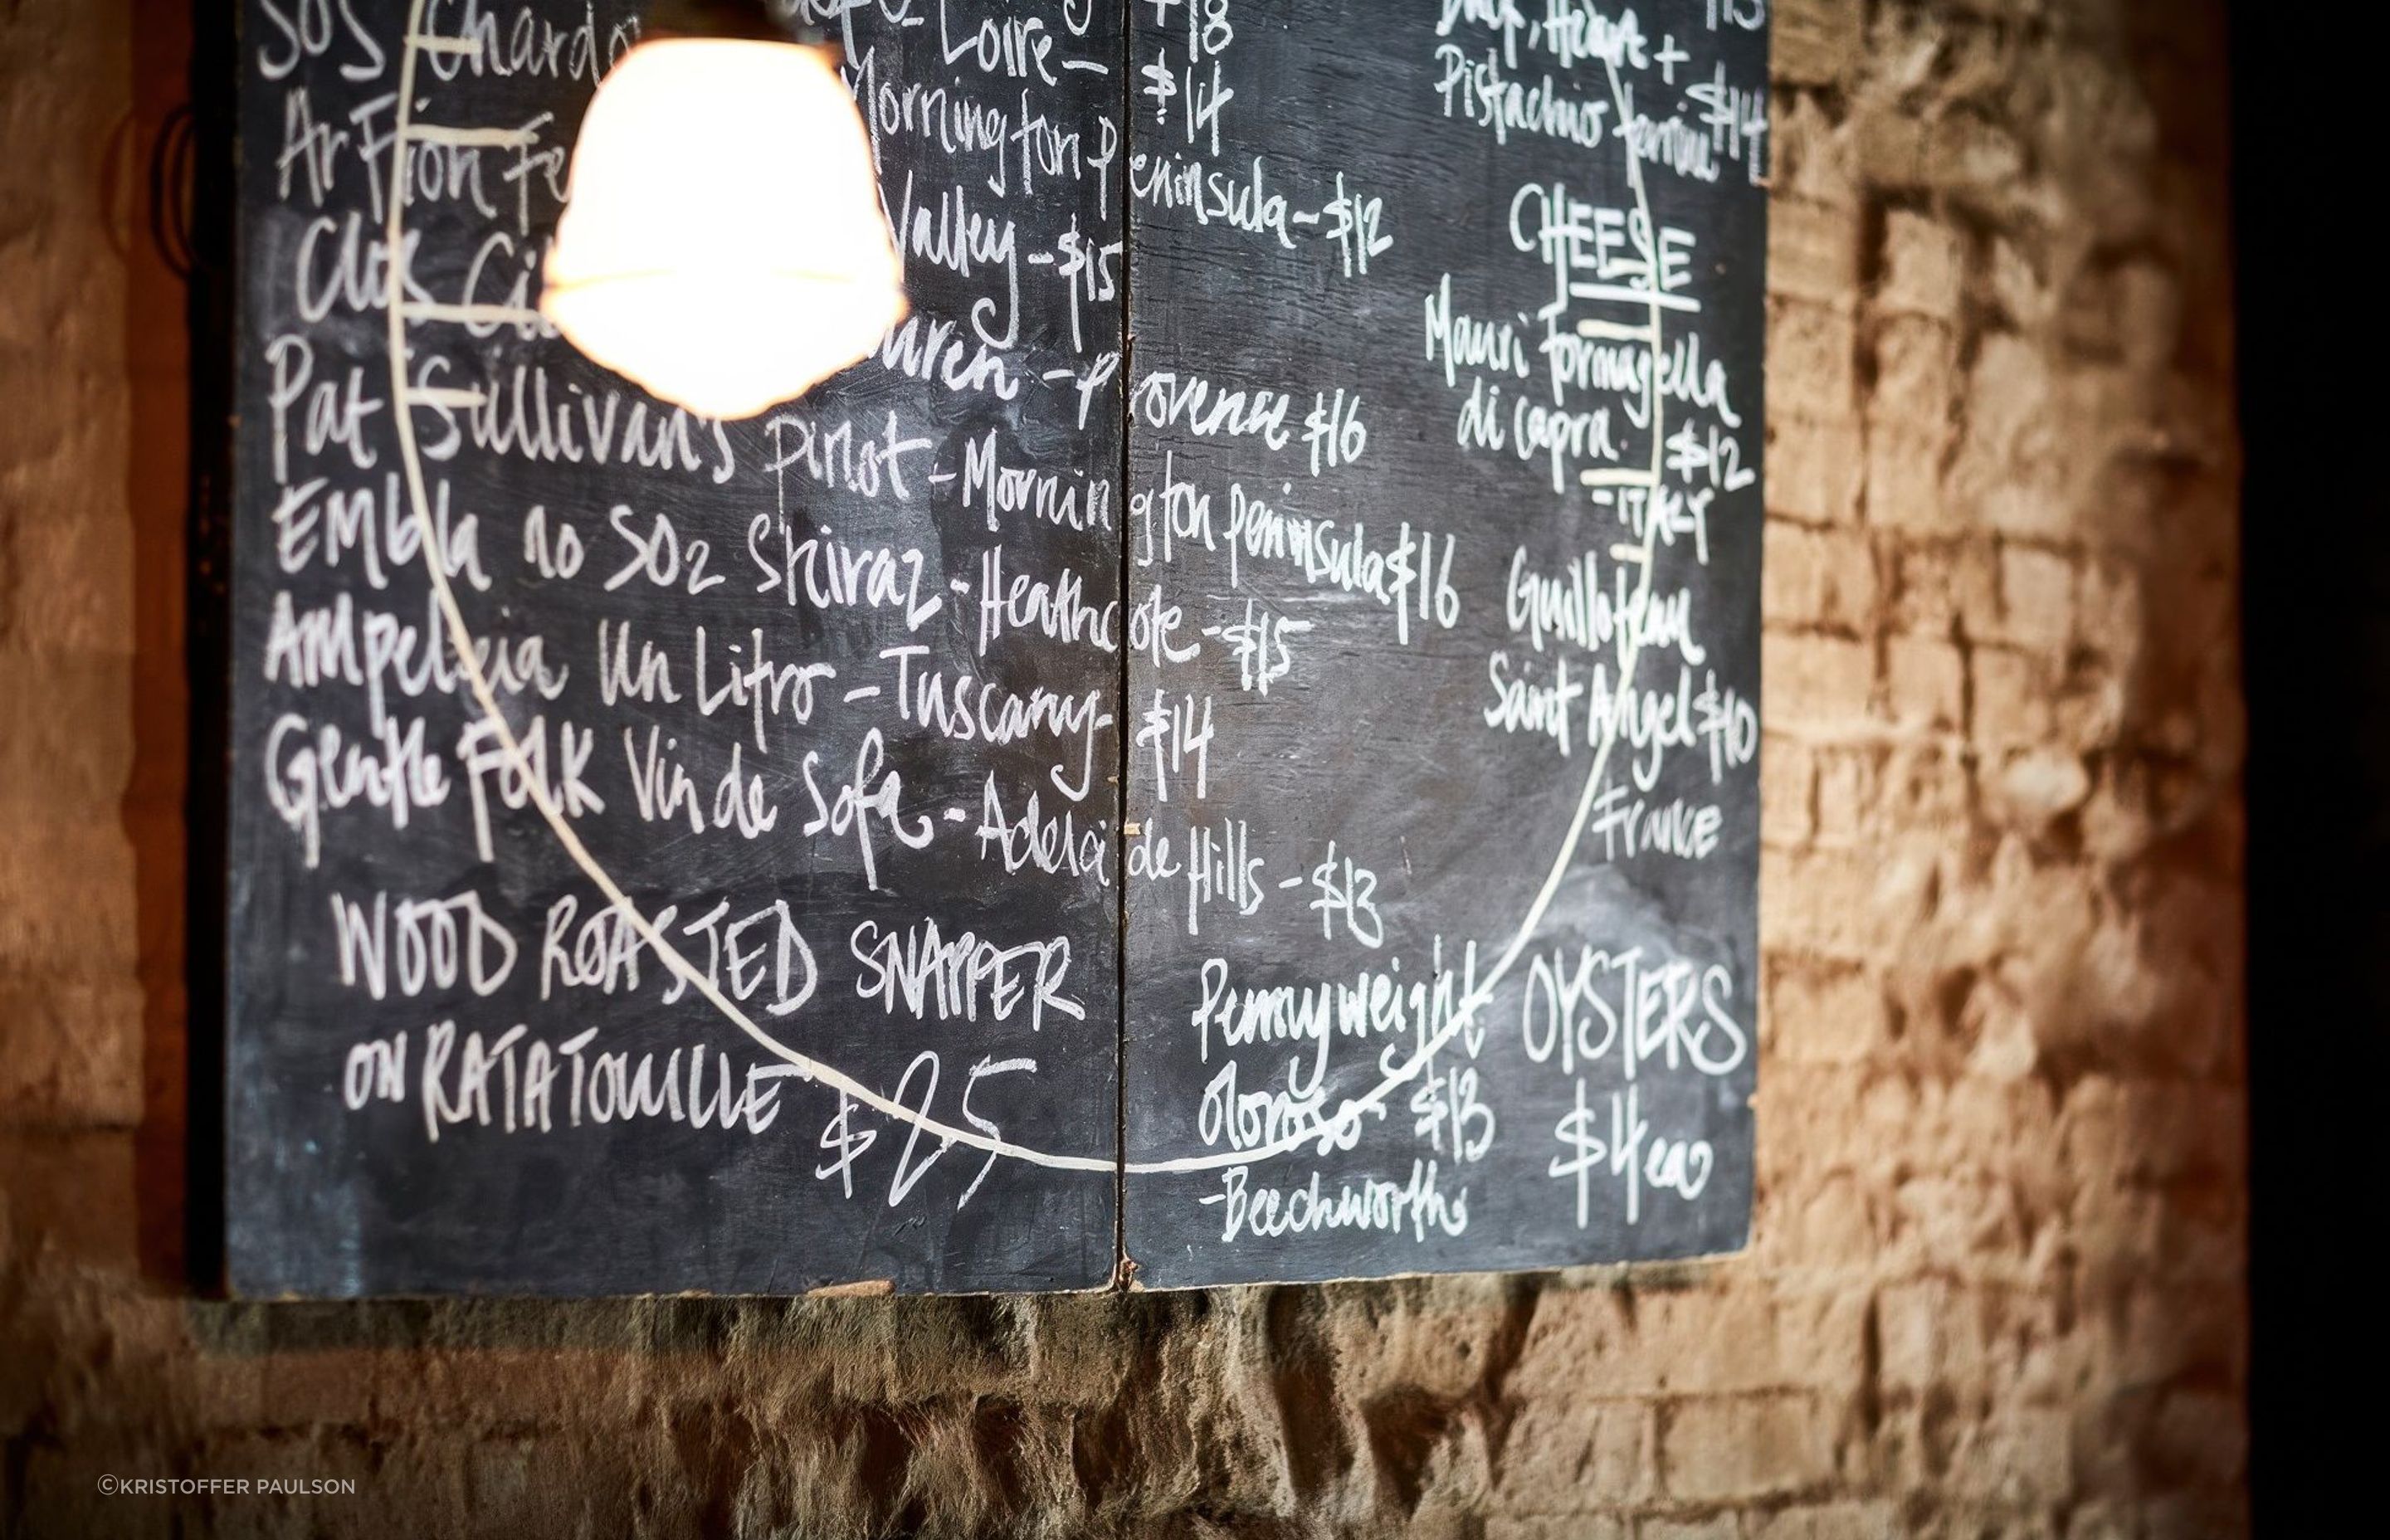 SOS Chardo
Loire - $14
$18
Ar Fion Fe
Mornington Peninsula - $12
Clos Ci
Valley - $15
Provence $16
Pat Sullivan's Pinot - Mornington Peninsula $16
Embla no SO2 Shiraz - Heathcote - $15
Ampeleia Un Litro - Tuscany - $14
Gentle Folk Vin de Sofa - Adelaide Hills - $13
WOOD ROASTED SNAPPER
ON RATATOUILLE $25
Pennyweight
Oloroso - $13
- Beechworth
Pistachio terrine $14
CHEESE
Mauri formagella
di capra. $12
- ITALY
Guilloteau
Saint Angel $10
France
OYSTERS
$4ea
©KRISTOFFER PAULSON